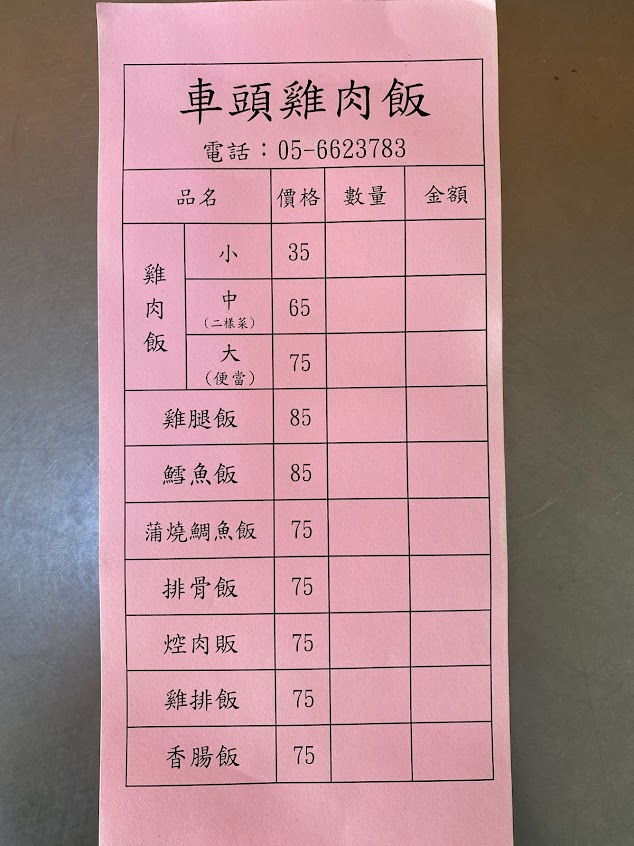 車頭雞肉飯
電話：05-6623783
品名 價格 數量 金額
雞肉飯 小 35
中（二樣菜） 65
大（便當） 75
雞腿飯 85
鱈魚飯 85
蒲燒鯛魚飯 75
排骨飯 75
焢肉販 75
雞排飯 75
香腸飯 75